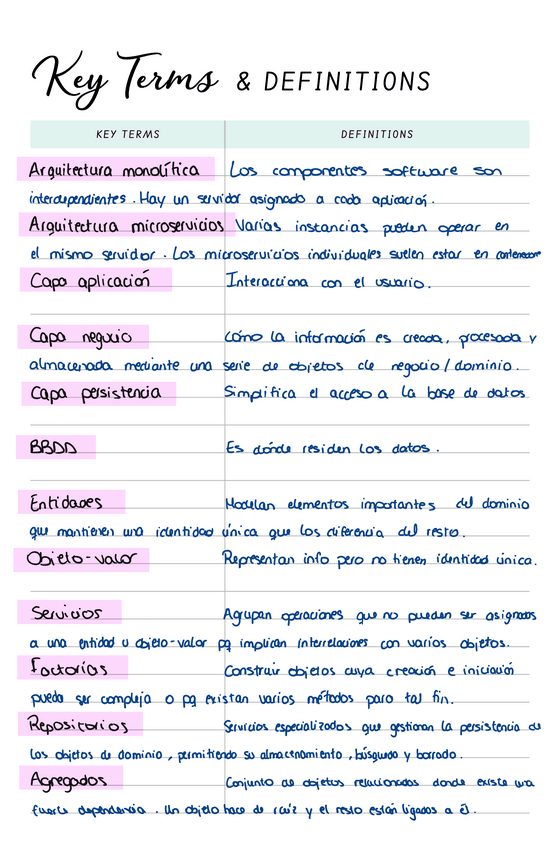 Key Terms & DEFINITIONS
KEY TERMS DEFINITIONS
Arquitectura monolítica Los componentes software son
interdependientes. Hay un servidor asignado a cada aplicación.
Arquitectura microservicios Varias instancias pueden operar en
el mismo servidor. Los microservicios individuales suelen estar en contenedores
Capa aplicación Interacciona con el usuario.
Capa negocio Cómo la información es creada, procesada y
almacenada mediante una serie de objetos de negocio / dominio.
Capa persistencia Simplifica el acceso a la base de datos
BBDD Es dónde residen los datos.
Entidades Modelan elementos importantes del dominio
que mantienen una identidad única que los diferencia del resto.
Objeto-valor Representan info pero no tienen identidad única.
Servicios Agrupan operaciones que no pueden ser asignadas
a una entidad u objeto-valor pq implican interrelaciones con varios objetos.
Factorías Construir objetos cuya creación e iniciación
puede ser compleja o pq existan varios métodos para tal fin.
Repositorios Servicios especializados que gestionan la persistencia de
los objetos de dominio, permitiendo su almacenamiento, búsqueda y borrado.
Agregados Conjunto de objetos relacionados donde existe una
fuerte dependencia. Un objeto hace de raíz y el resto están ligados a él.